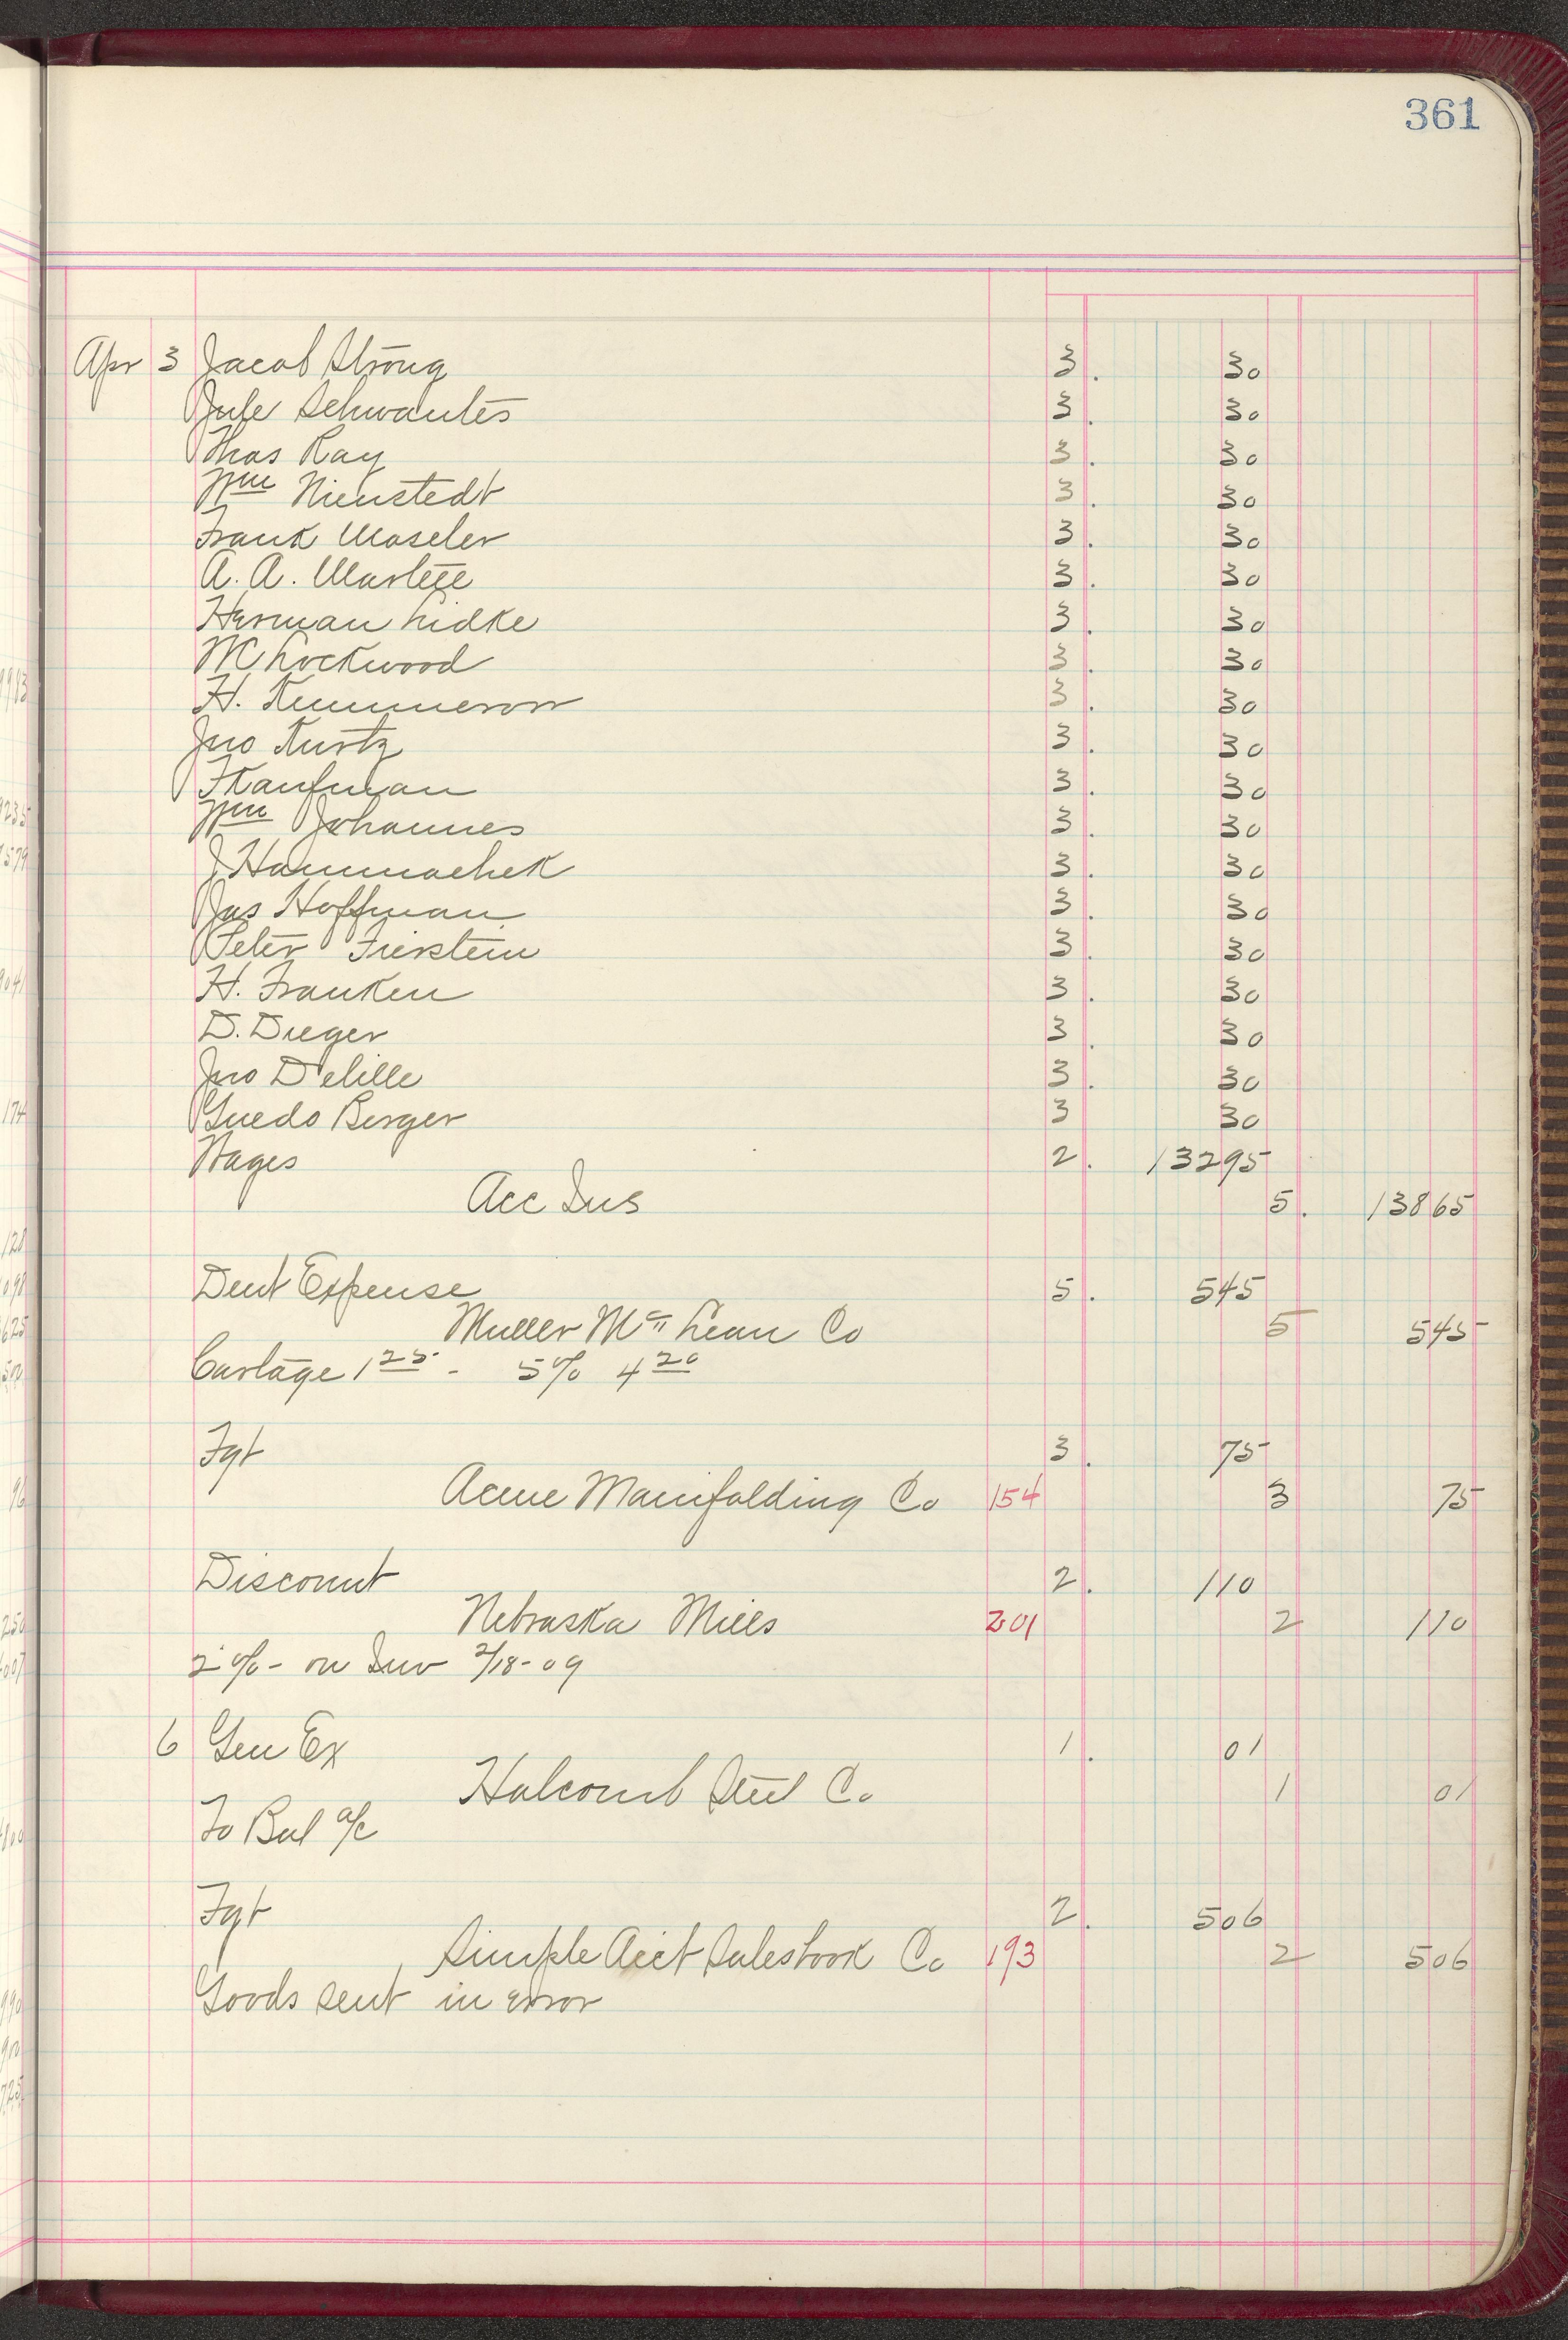 361
Apr 3 Jacob Strong 3. 30
Jule Schwantes 3. 30
Thos Ray 3. 30
Wm Nienstedt 3. 30
Frank Moseler 3. 30
A. A. 3. 30
Herman Lidke 3. 30
W C Lockwood 3. 30
H. Kummerow 3. 30
Jno Kurtz 3. 30
F Kaufman 3. 30
Wm Johannes 3. 30
J Hammachek 3. 30
Jas Hoffman 3. 30
Peter Fierstein 3. 30
H. Franken 3. 30
D. Dieger 3. 30
Jno Delille 3. 30
Guedo Berger 3 30
Wages 2. 132 95
Acc Ins 5. 138 65
Dent Expense 5. 5 45
Muller McLean Co 5 5 45
Cartage 1 25 - 5% 4 20
Fgt 3. 75
Acme Manifolding Co 154 3 75
Discount 2. 1 10
Nebraska Mills 201 2 1 10
2% - on Inv 2/18-09
6 Gen Ex 1. 01
Halcomb Steel Co 1 01
To Bal a/c
Fgt 2. 5 06
Simple Acct Salesbook Co 193 2 5 06
Goods sent in error